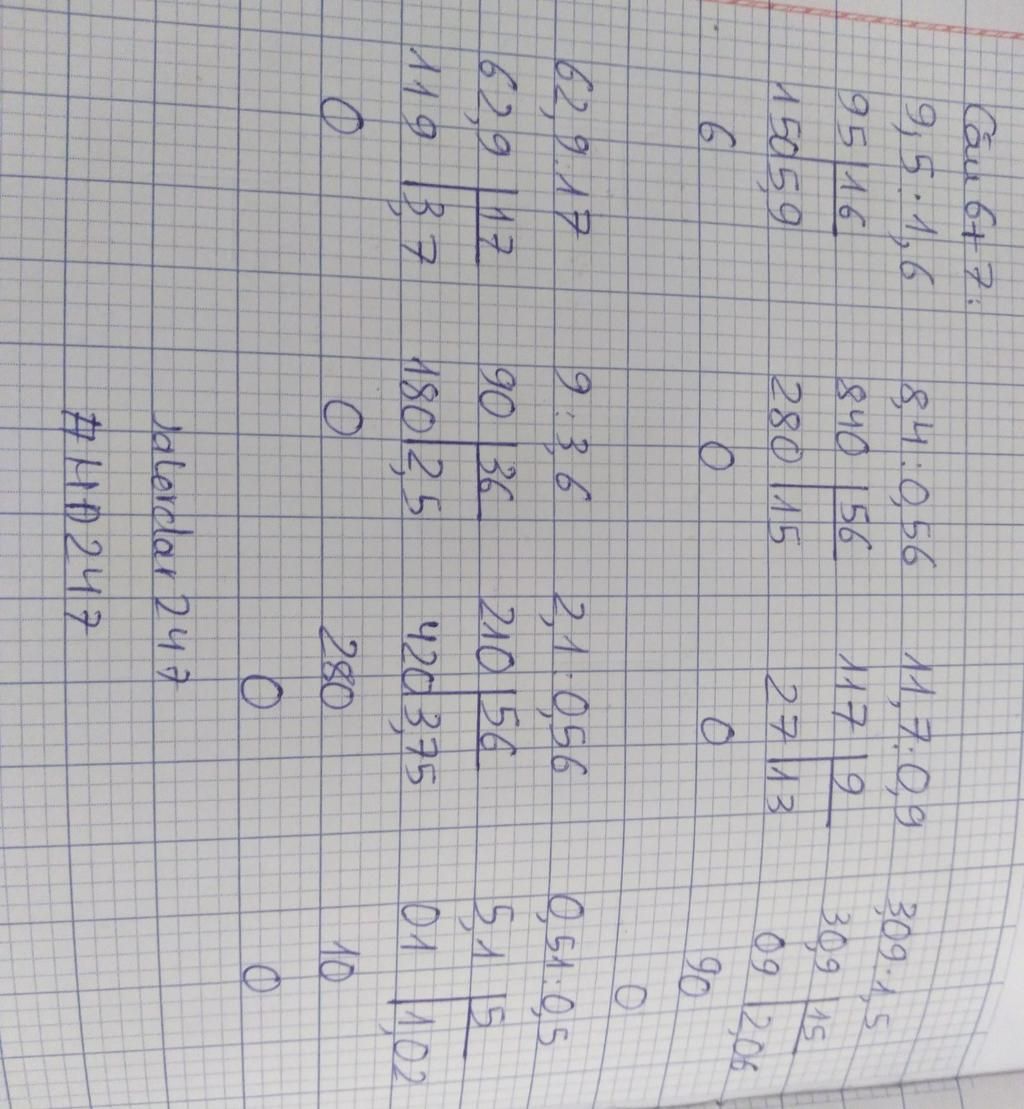 Câu 6+7:
9,5:1,6 8,4:0,56 11,7:0,9 3,09:1,5
95 16 840 56 117 9 30,9 15
150 5,9 280 15 27 13 09 2,06
6 0 0 90
0
62,9:17 9:3,6 2,1:0,56 0,51:0,5
62,9 17 90 36 210 56 5,1 5
119 3,7 180 2,5 420 3,75 01 1,02
0 0 280 10
0 0
#HD247